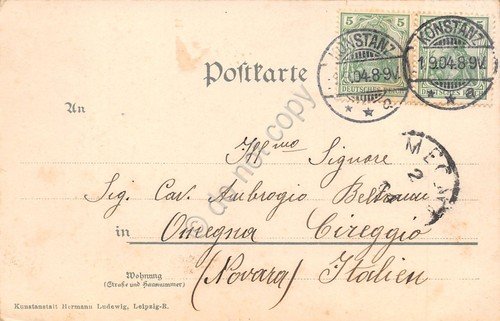 5 5
KONSTANZ KONSTANZ
1.9.04.8-9V. 1.9.04.8-9V.
DEUTSCHES
* * a. * * a
Postkarte
An
Ill.mo Signore
Sig. Cav. Ambrogio Beltrami
in Omegna Cireggio
(Novara) Italien
Wohnung
(Straße und Hausnummer)
Kunstanstalt Hermann Ludewig, Leipzig-R.
do not copy